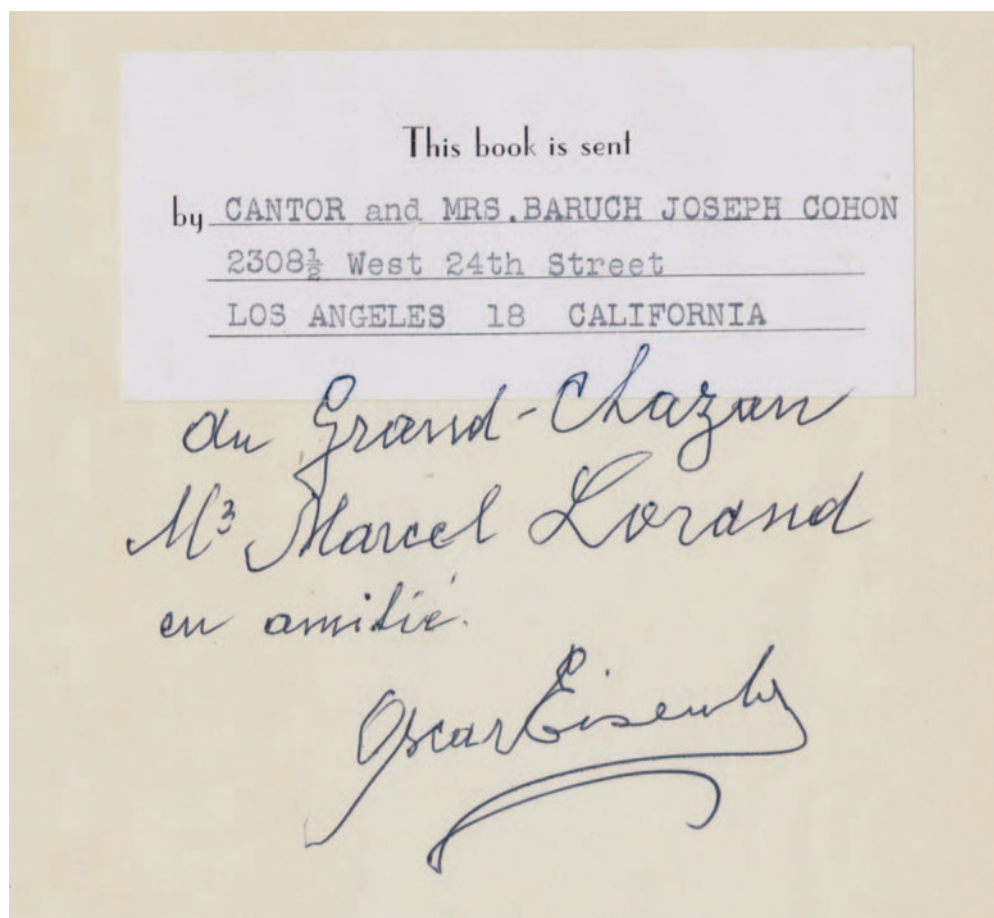 This book is sent
by CANTOR and MRS.BARUCH JOSEPH COHON
2308½ West 24th Street
LOS ANGELES 18 CALIFORNIA
au Grand-Chazan
Mr Marcel Lorand
en amitié.
Oscar